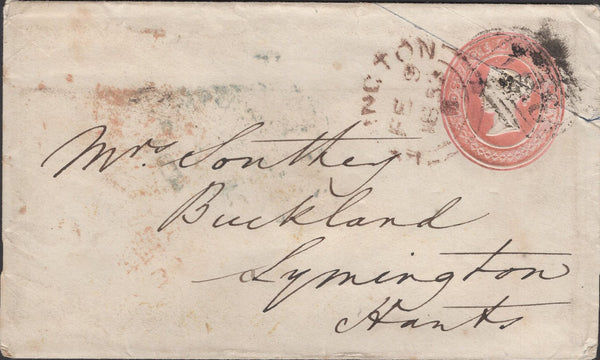 Mrs Southey
Buckland
Lymington
Hants